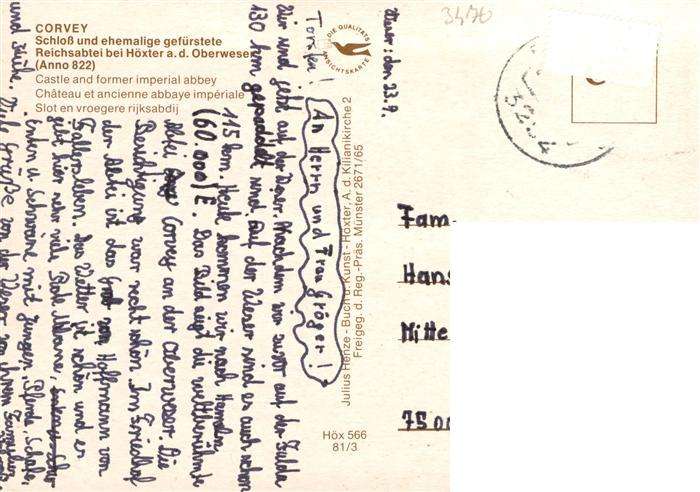 CORVEY
Schloß und ehemalige gefürstete
Reichsabtei bei Höxter a. d. Oberweser
(Anno 822)
Castle and former imperial abbey
Château et ancienne abbaye impériale
Slot en vroegere rijksabdij
DIE QUALITÄTS
ANSICHTSKARTE
Julius Henze - Buch u. Kunst - Höxter, A. d. Kilianikirche 2
Freigeg. d. Reg.-Präs. Münster 2671/65
Höx 566
81/3
3470
Weser, den 23.9.
An Herrn und Frau Gröger!
Wir sind jetzt auf der Weser. Nachdem wir zuvor auf der Fulda
130 km gepaddelt sind, auf der Weser sind es auch schon
115 km. Heute kommen wir nach Hameln,
(60.000) E. Das Bild zeigt die weltberühmte
Abtei Corvey an der Oberweser. Die
Besichtigung war recht schön. Im Friedhof
der Abtei ist das Grab von Hoffmann von
Fallersleben. Das Wetter ist schön und es
gibt hier sehr viele Milane,
Enten u. Schwäne mit Jungen, Pferde, Schafe,
und Kühe. Viele Grüße von der Weser von Ihrem
Torsten!
Fam
Hans
Mitte
7500